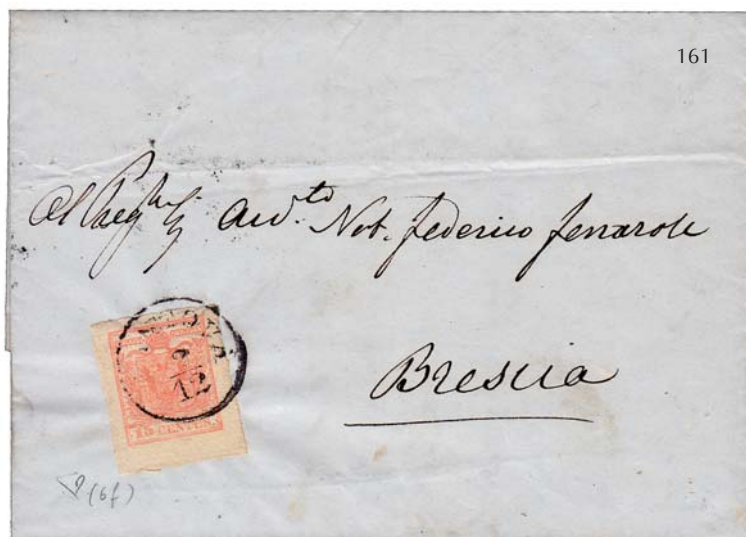 161
Al Preg. Avv.to Nob. Federico Fenaroli
Brescia
12
15 CENTES.
(6f)